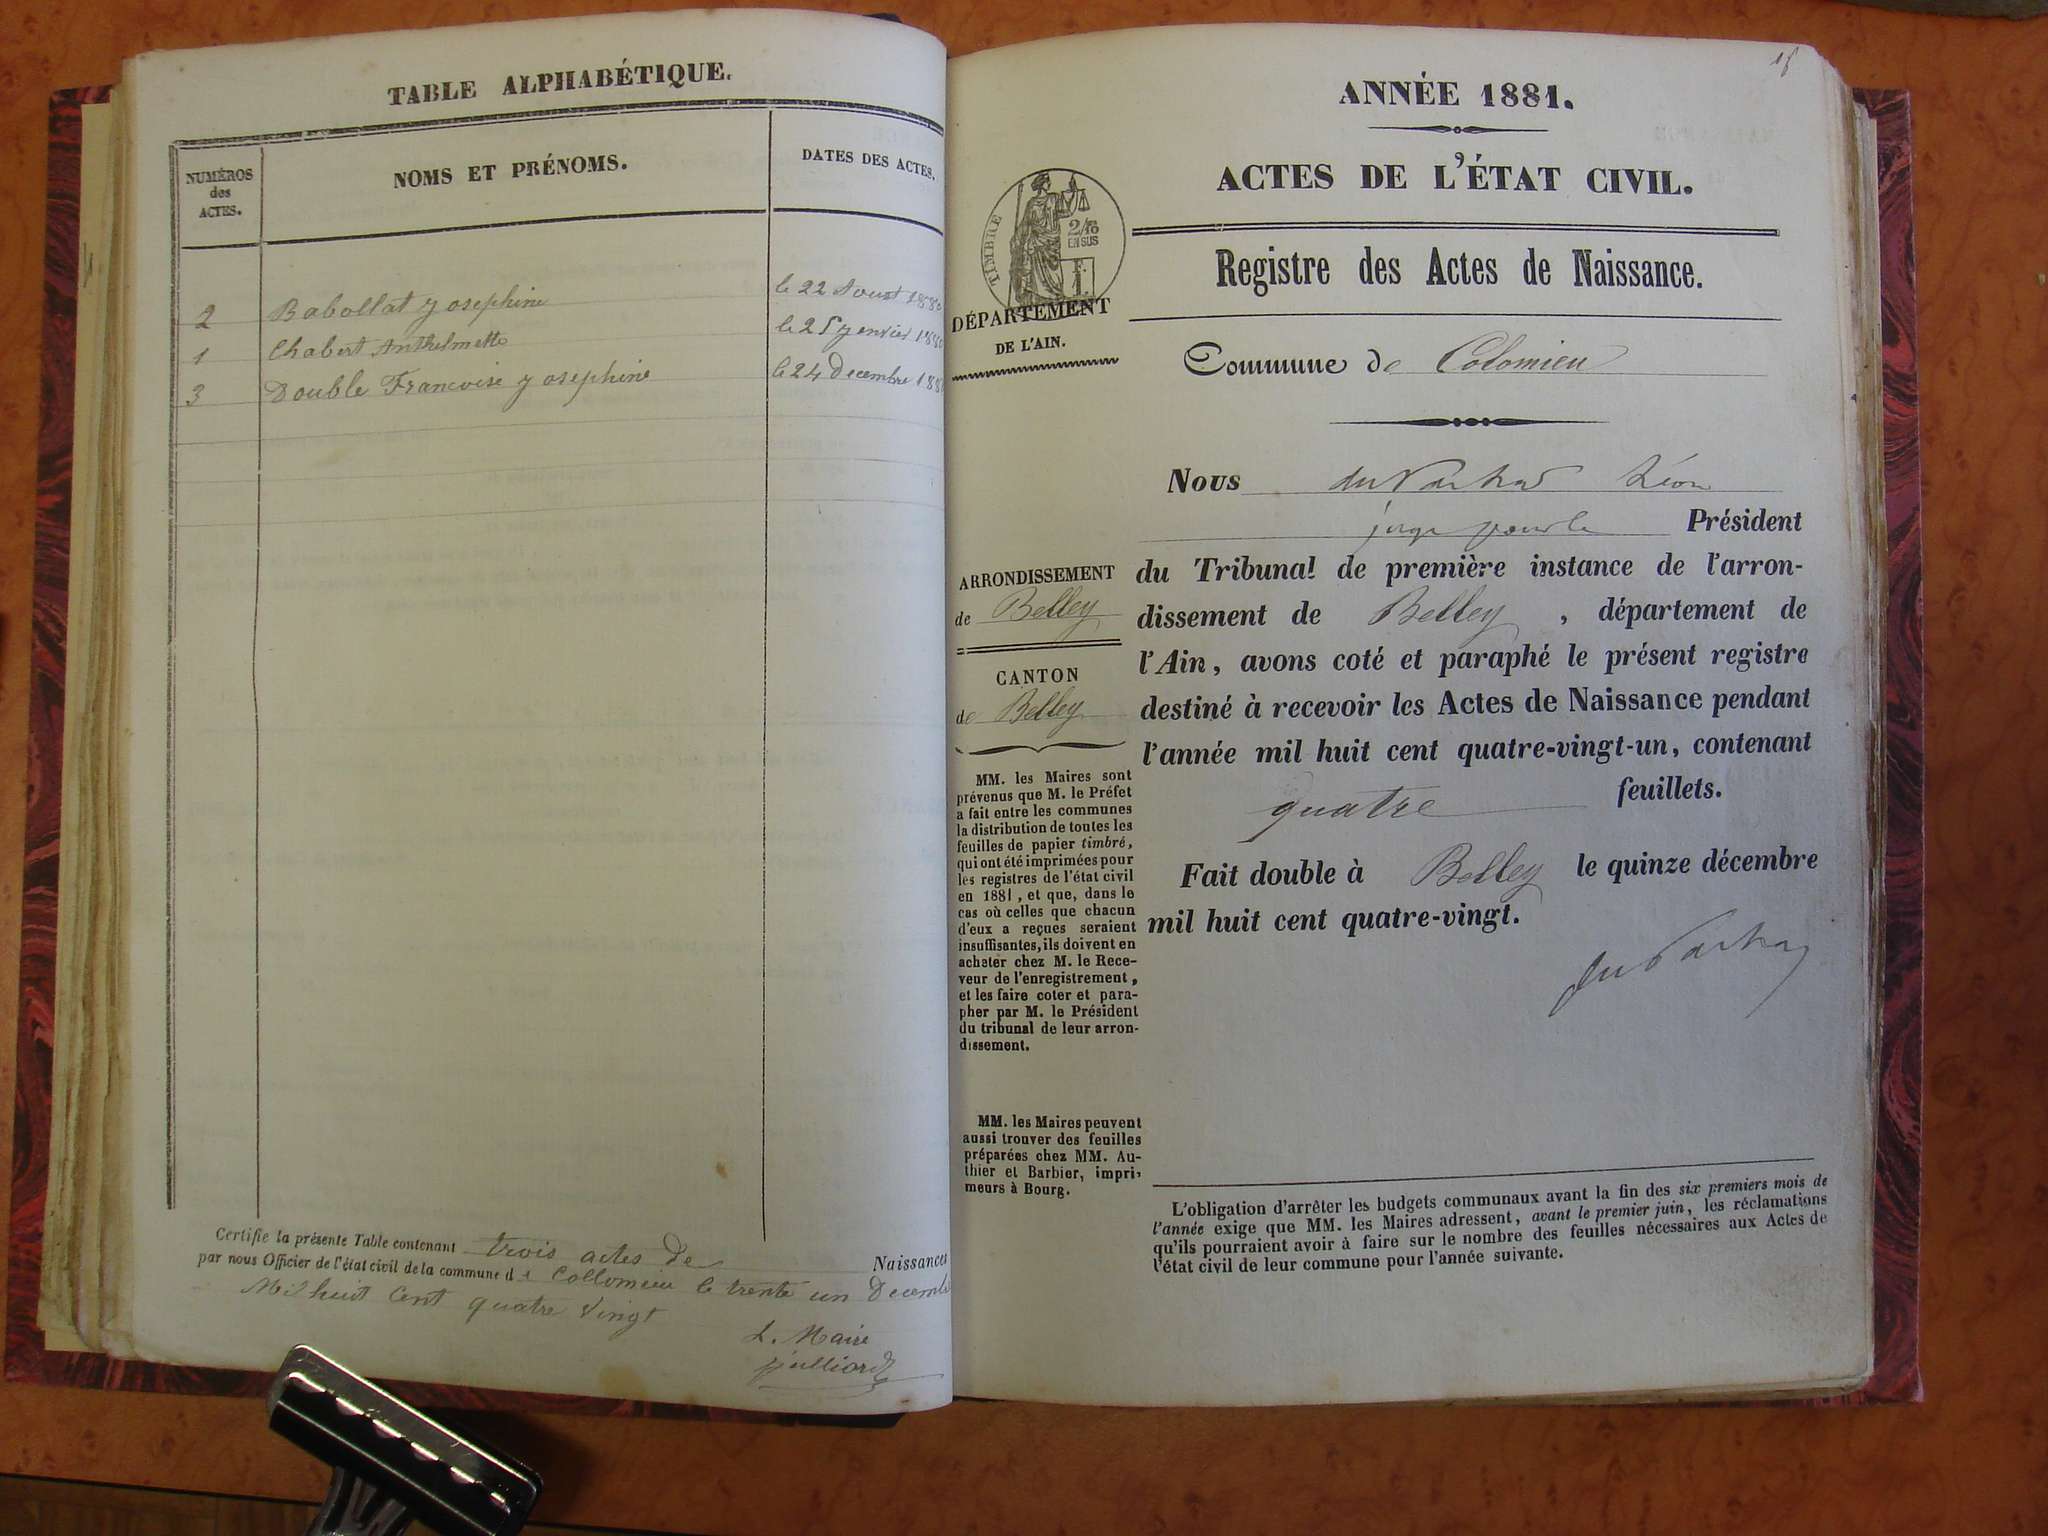 TABLE ALPHABÉTIQUE.
NUMÉROS
des
ACTES.
NOMS ET PRÉNOMS.
DATES DES ACTES.
2 Babollat Josephine le 22 Aoust 188
1 Chabert Anthelmette le 25 Jenvier 188
3 Double Francoise Josephine le 24 Decembre 188
Certifie la présente Table contenant trois actes de Naissances
par nous Officier de l'état civil de la commune de Collomieu le trente un Decembre
Mil huit Cent quatre Vingt
L. Maire
Julliard
ANNÉE 1881.
ACTES DE L'ÉTAT CIVIL.
TIMBRE
2/10
EN SUS
F.
1.
DÉPARTEMENT
DE L'AIN.
Registre des Actes de Naissance.
Commune de Colomieu
Nous Léon
juge pour le Président
ARRONDISSEMENT
de Belley
CANTON
de Belley
du Tribunal de première instance de l'arron-
dissement de Belley, département de
l'Ain, avons coté et paraphé le présent registre
destiné à recevoir les Actes de Naissance pendant
l'année mil huit cent quatre-vingt-un, contenant
quatre feuillets.
Fait double à Belley le quinze décembre
mil huit cent quatre-vingt.
MM. les Maires sont
prévenus que M. le Préfet
a fait entre les communes
la distribution de toutes les
feuilles de papier timbré,
qui ont été imprimées pour
les registres de l'état civil
en 1881, et que, dans le
cas où celles que chacun
d'eux a reçues seraient
insuffisantes, ils doivent en
acheter chez M. le Rece-
veur de l'enregistrement,
et les faire coter et para-
pher par M. le Président
du tribunal de leur arron-
dissement.
MM. les Maires peuvent
aussi trouver des feuilles
préparées chez MM. Au-
thier et Barbier, impri-
meurs à Bourg.
L'obligation d'arrêter les budgets communaux avant la fin des six premiers mois de
l'année exige que MM. les Maires adressent, avant le premier juin, les réclamations
qu'ils pourraient avoir à faire sur le nombre des feuilles nécessaires aux Actes de
l'état civil de leur commune pour l'année suivante.